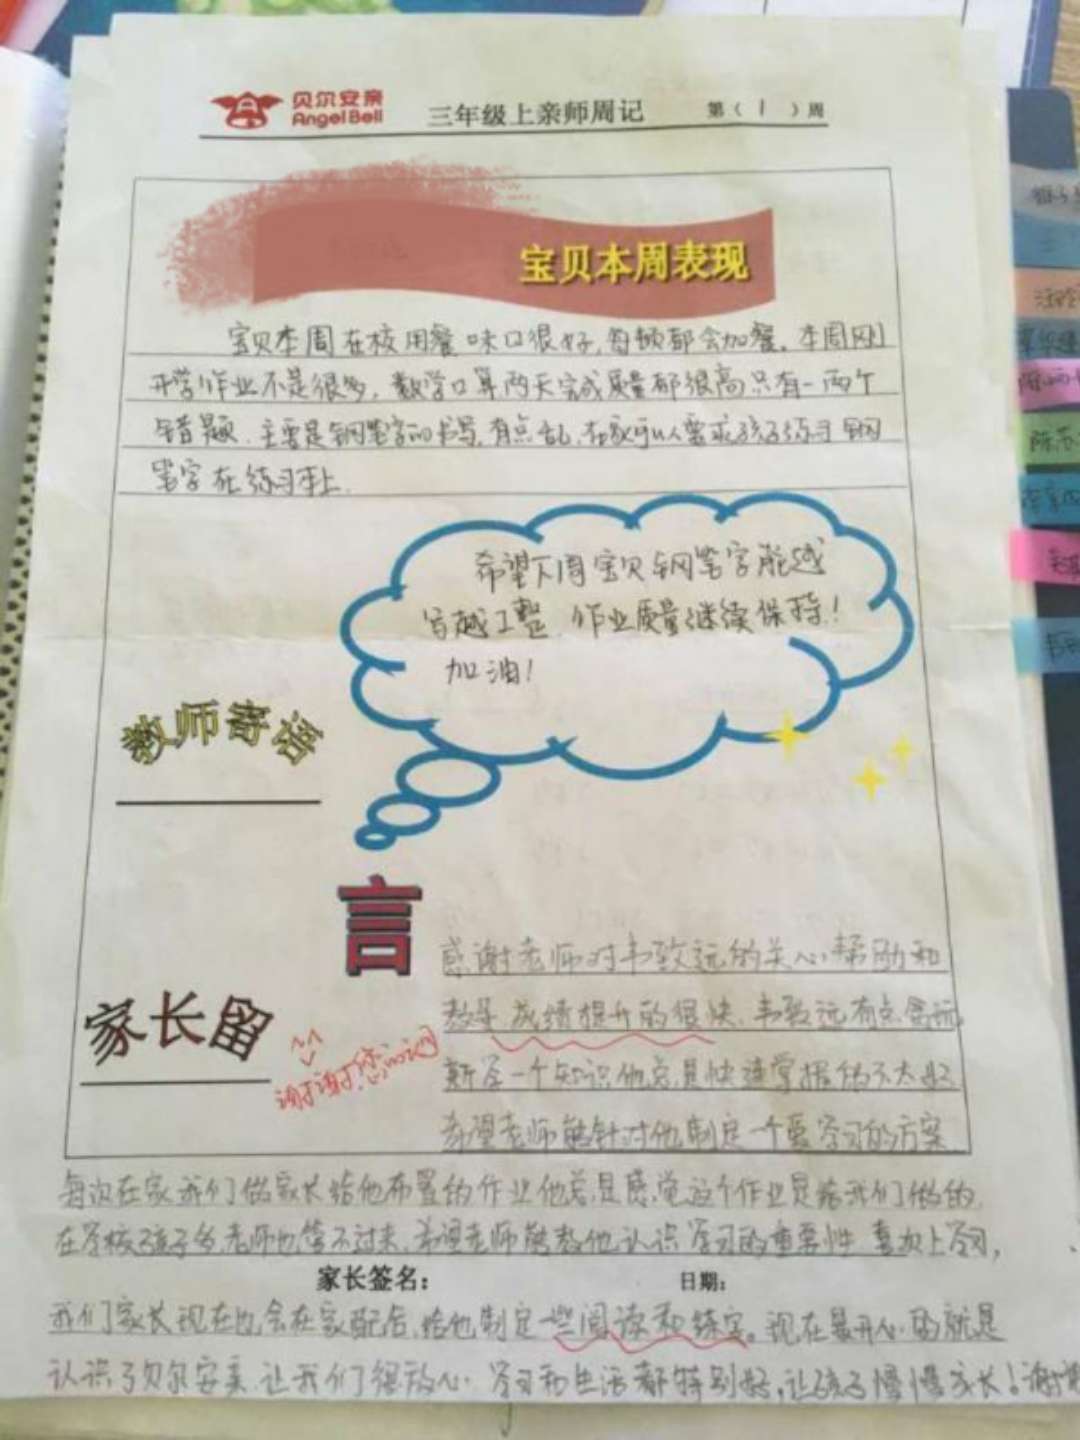 贝尔安亲
AngelBell
三年级上亲师周记
第（1）周
宝贝本周表现
宝贝本周在校用餐味口很好,每顿都会加餐。本周刚
开学作业不是很多,数学口算两天完成质量都很高只有一两个
错题.主要是钢笔字的书写,有点乱,在家可以要求孩子练习钢
笔字在练习本上.
希望下周宝贝钢笔字能越
写越工整.作业质量继续保持!
加油!
教师寄语
言
家长留
谢谢您的认可
感谢老师对韦致远的关心帮助和
教导.成绩提升的很快.韦致远有点贪玩,
新学一个知识他总是快速掌握的不太好
希望老师能针对他制定一个学习的方案.
每次在家我们做家长给他布置的作业他总是感觉这个作业是给我们做的.
在学校孩子多,老师也管不过来,希望老师能教他认识学习的重要性 喜欢上学习,
家长签名： 日期：
我们家长现在也会在家配合,给他制定一些阅读和练字。现在最开心的就是
认识了贝尔安亲.让我们很放心.学习和生活都特别好,让孩子慢慢成长!谢谢